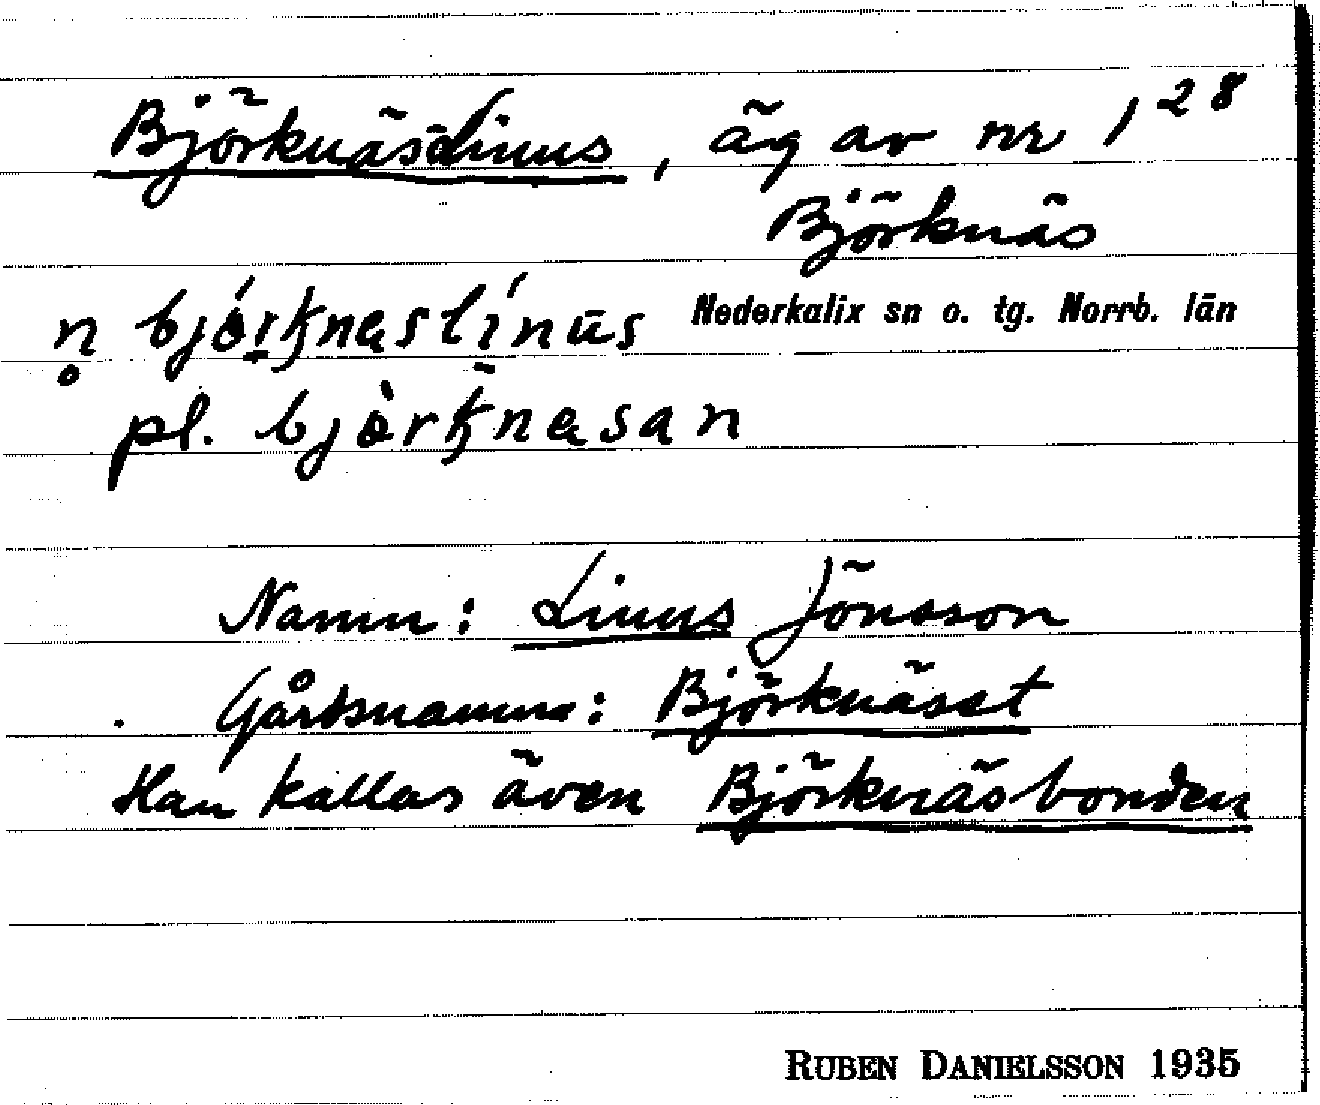 Björknäs-Linus, äg av nr 1 28
Björknäs
Nederkalix sn o. tg. Norrb. län
n̥ bjórk̠naslínus
pl. bjòrk̠nasan
Namn: Linus Jönsson
Gårdsnamn: Björknäset
Han kallas även Björknäsbonden
RUBEN DANIELSSON 1935